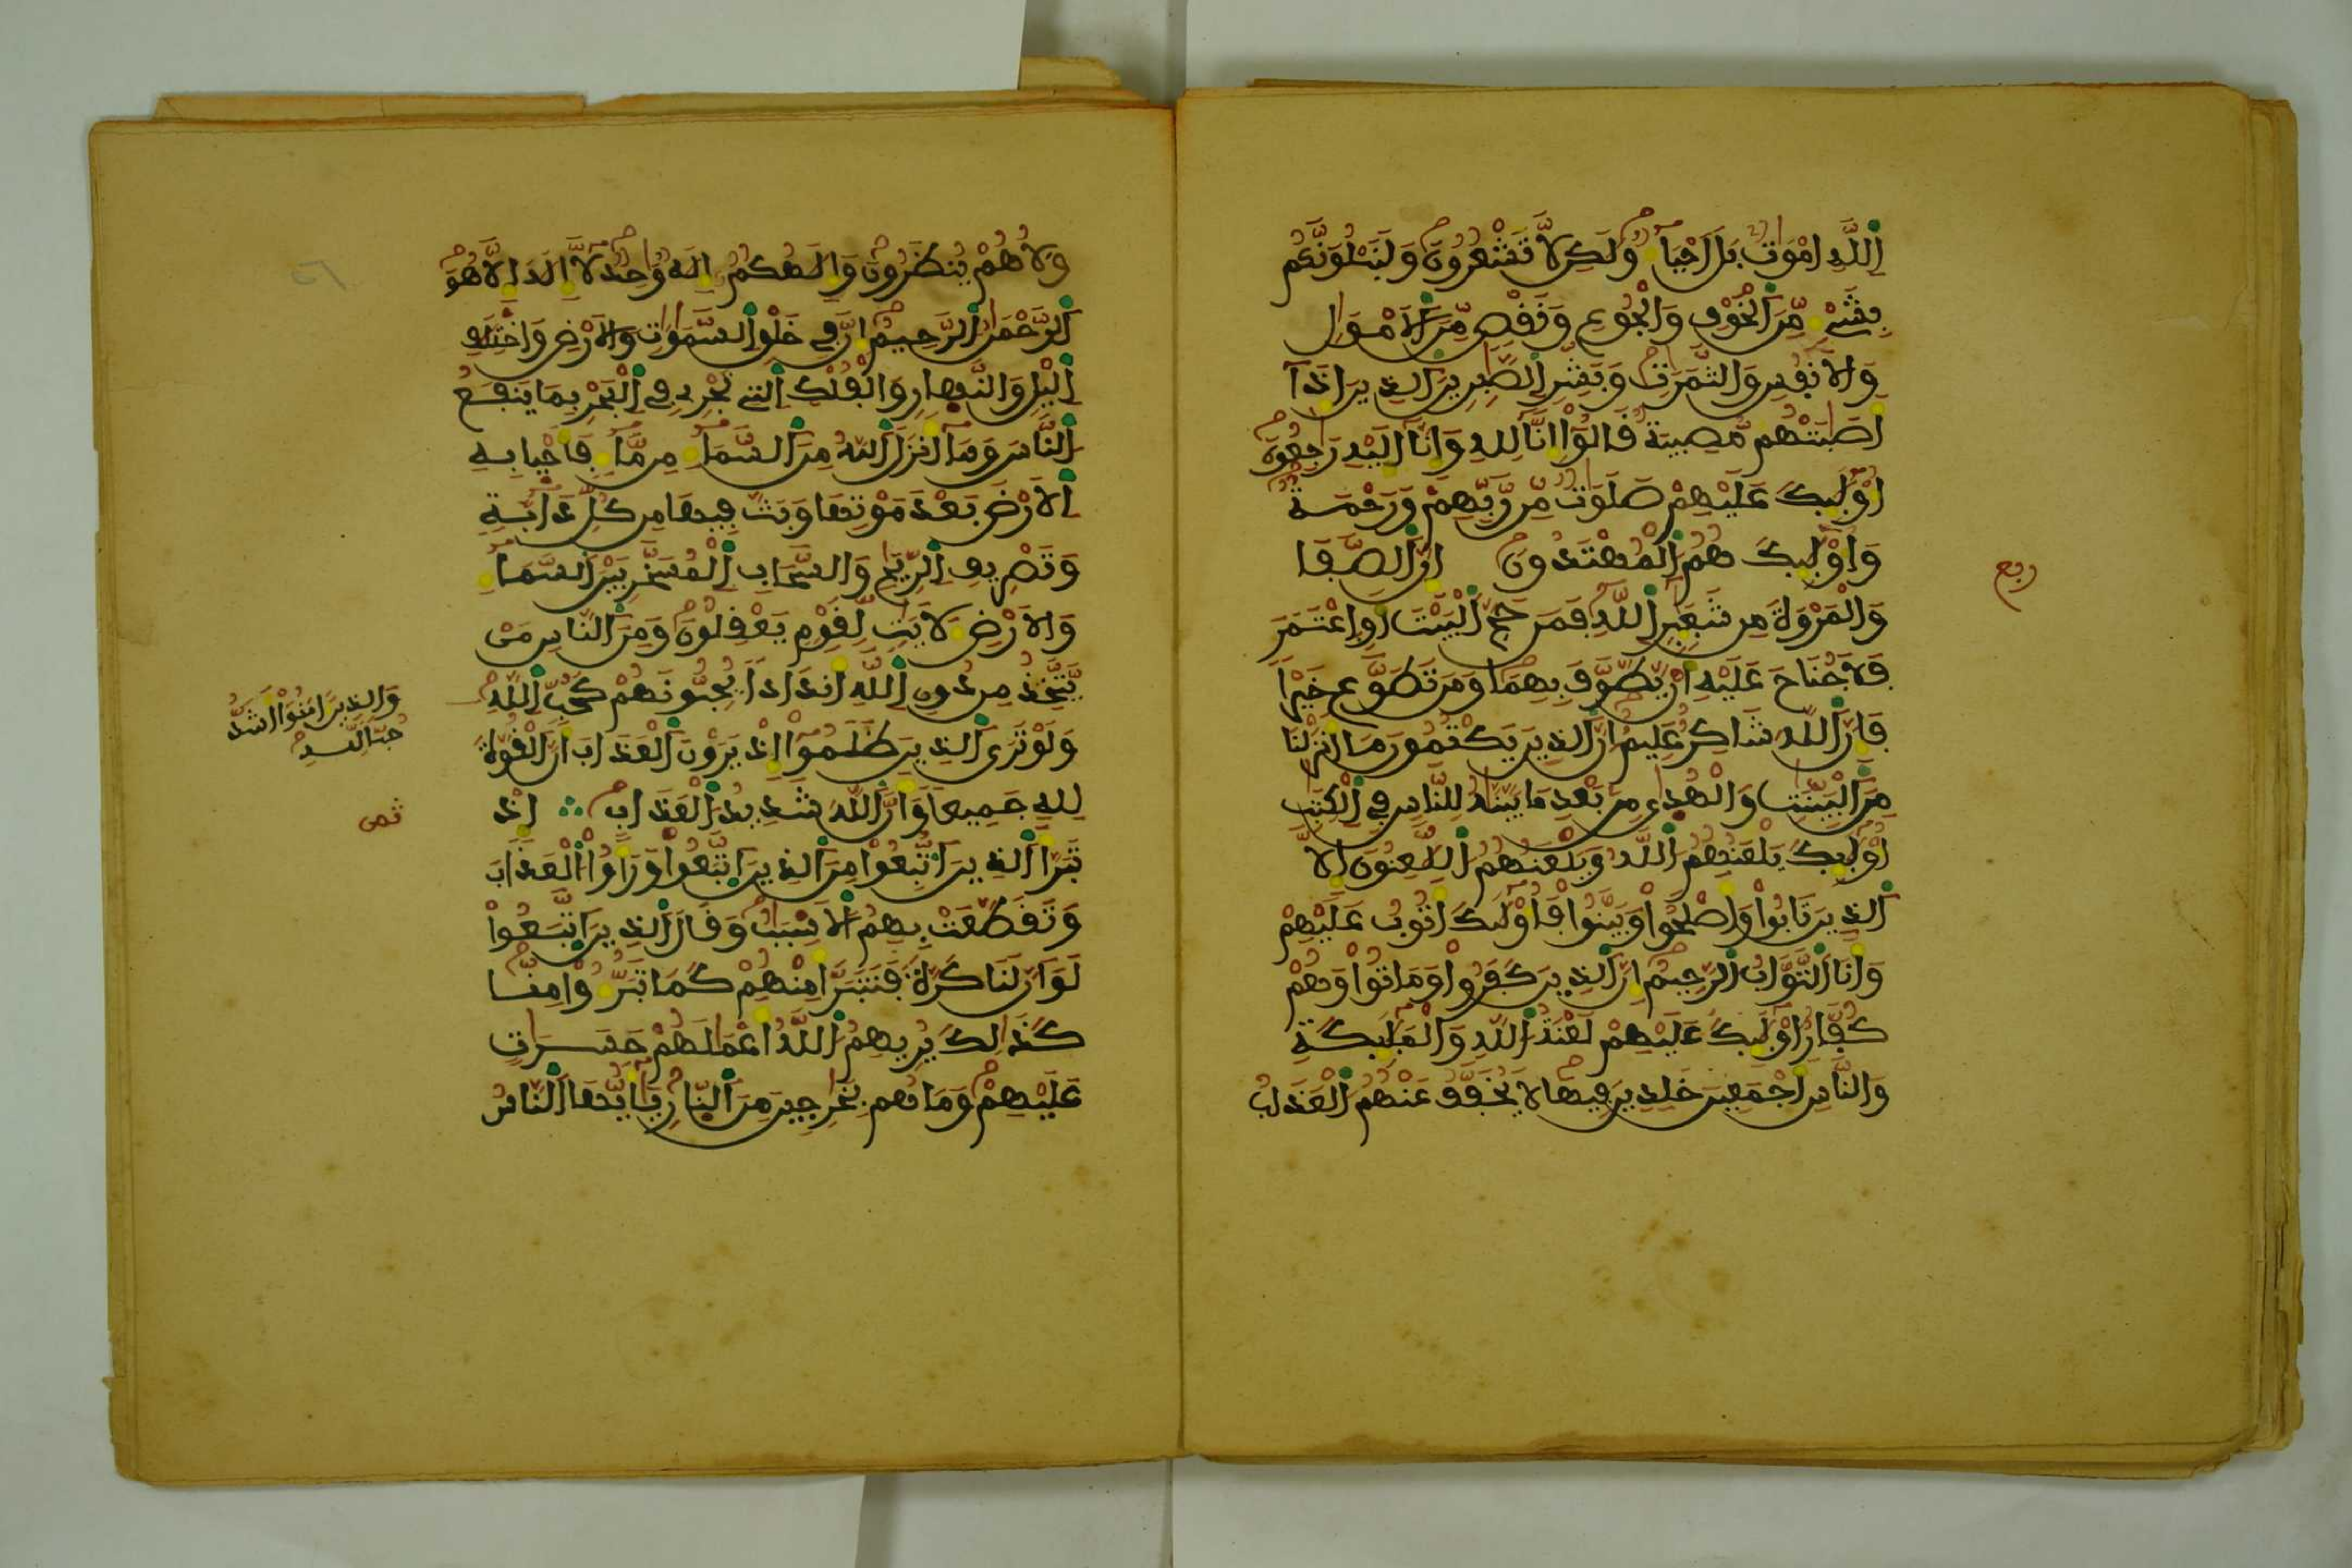 اللَّهِ امْوَٰتٌ بَلَ احْيَآءٌ وَلَٰكِن لَّا تَشْعُرُونَ وَلَنَبْلُوَنَّكُم
بِشَےْءٍ مِّنَ اَلْخَوْفِ وَالْجُوعِ وَنَقْصٍ مِّنَ اَلَامْوَٰلِ
وَالَانفُسِ وَالثَّمَرَٰتِ وَبَشِّرِ اِلصَّٰبِرِينَ اَلذِينَ إِذَآ
أَصَٰبَتْهُم مُّصِيبَةٌ قَالُوٓاْ إِنَّا لِلهِ وَإِنَّآ إِلَيْهِ رَٰجِعُونَ
أُوْلَٰٓئِكَ عَلَيْهِمْ صَلَوَٰتٌ مِّن رَّبِّهِمْ وَرَحْمَةٌ
وَأُوْلَٰٓئِكَ هُمُ اُلْمُهْتَدُونَ إِنَّ اَلصَّفَا
وَالْمَرْوَةَ مِن شَعَٰٓئِرِ اِللَّهِ فَمَنْ حَجَّ اَلْبَيْتَ أَوِ اِعْتَمَرَ
فَلَا جُنَاحَ عَلَيْهِ أَنْ يَّطَّوَّفَ بِهِمَا وَمَن تَطَوَّعَ خَيْرًا
فَإِنَّ اَللَّهَ شَاكِرٌ عَلِيمٌ إِنَّ اَلذِينَ يَكْتُمُونَ مَا أَنزَلْنَا
مِنَ اَلْبَيِّنَٰتِ وَالْهُدَىٰ مِنۢ بَعْدِ مَا بَيَّنَّٰهُ لِلنَّاسِ فِي اِلْكِتَٰبِ
أُوْلَٰٓئِكَ يَلْعَنُهُمُ اُللَّهُ وَيَلْعَنُهُمُ اُللَّٰعِنُونَ إِلَّا
اَلذِينَ تَابُواْ وَأَصْلَحُواْ وَبَيَّنُواْ فَأُوْلَٰٓئِكَ أَتُوبُ عَلَيْهِمْ
وَأَنَا اَلتَّوَّابُ اُلرَّحِيمُ إِنَّ اَلذِينَ كَفَرُواْ وَمَاتُواْ وَهُمْ
كُفَّارٌ اوْلَٰٓئِكَ عَلَيْهِمْ لَعْنَةُ اُللَّهِ وَالْمَلَٰٓئِكَةِ
وَالنَّاسِ أَجْمَعِينَ خَٰلِدِينَ فِيهَا لَا يُخَفَّفُ عَنْهُمُ اُلْعَذَابُ
ربع
وَلَا هُمْ يُنظَرُونَ وَإِلَٰهُكُمُ إِلَٰهٌ وَٰحِدٌ لَّآ إِلَٰهَ إِلَّا هُوَ
اَلرَّحْمَٰنُ اُلرَّحِيمُ إِنَّ فِي خَلْقِ اِلسَّمَٰوَٰتِ وَالَارْضِ وَاخْتِلَٰفِ
اِليْلِ وَالنَّهَارِ وَالْفُلْكِ اِلتِي تَجْرِي فِي اِلْبَحْرِ بِمَا يَنفَعُ
اُلنَّاسَ وَمَآ أَنزَلَ اَللَّهُ مِنَ اَلسَّمَآءِ مِن مَّآءٍ فَأَحْيَا بِهِ
اِلَارْضَ بَعْدَ مَوْتِهَا وَبَثَّ فِيهَا مِن كُلِّ دَآبَّةٍ
وَتَصْرِيفِ اِلرِّيَٰحِ وَالسَّحَابِ اِلْمُسَخَّرِ بَيْنَ اَلسَّمَآءِ
وَالَارْضِ لَأٓيَٰتٍ لِّقَوْمٍ يَعْقِلُونَ وَمِنَ اَلنَّاسِ مَنْ
يَّتَّخِذُ مِن دُونِ اِللَّهِ أَندَادًا يُحِبُّونَهُمْ كَحُبِّ اِللَّهِ
وَالذِينَ ءَامَنُوٓاْ أَشَدُّ
حُبًّا لِّلهِ
وَلَوْ تَرَى اَلذِينَ ظَلَمُوٓاْ إِذْ يَرَوْنَ اَلْعَذَابَ أَنَّ اَلْقُوَّةَ
لِلهِ جَمِيعًا وَأَنَّ اَللَّهَ شَدِيدُ اُلْعَذَابِ ∴ إِذْ
ثمن
تَبَرَّأَ اَلذِينَ اَتُّبِعُواْ مِنَ اَلذِينَ اَتَّبَعُواْ وَرَأَوُاْ اُلْعَذَابَ
وَتَقَطَّعَتْ بِهِمُ اُلَاسْبَٰبُ وَقَالَ اَلذِينَ اَتَّبَعُواْ
لَوَ انَّ لَنَا كَرَّةً فَنَتَبَرَّأَ مِنْهُمْ كَمَا تَبَرَّءُواْ مِنَّا
كَذَٰلِكَ يُرِيهِمُ اُللَّهُ أَعْمَٰلَهُمْ حَسَرَٰتٍ
عَلَيْهِمْ وَمَا هُم بِخَٰرِجِينَ مِنَ اَلنَّارِ يَٰٓأَيُّهَا اَلنَّاسُ